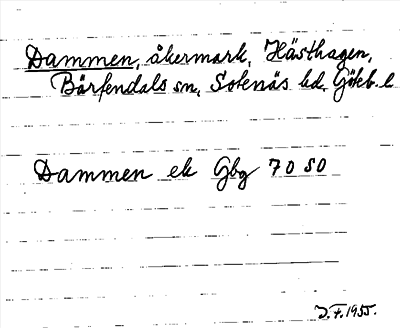 Dammen, åkermark, Hästhagen,
Bärfendals sn, Sotenäs hd, Göteb. l
Dammen ek Gbg 7 0 SO
J.F. 1955.